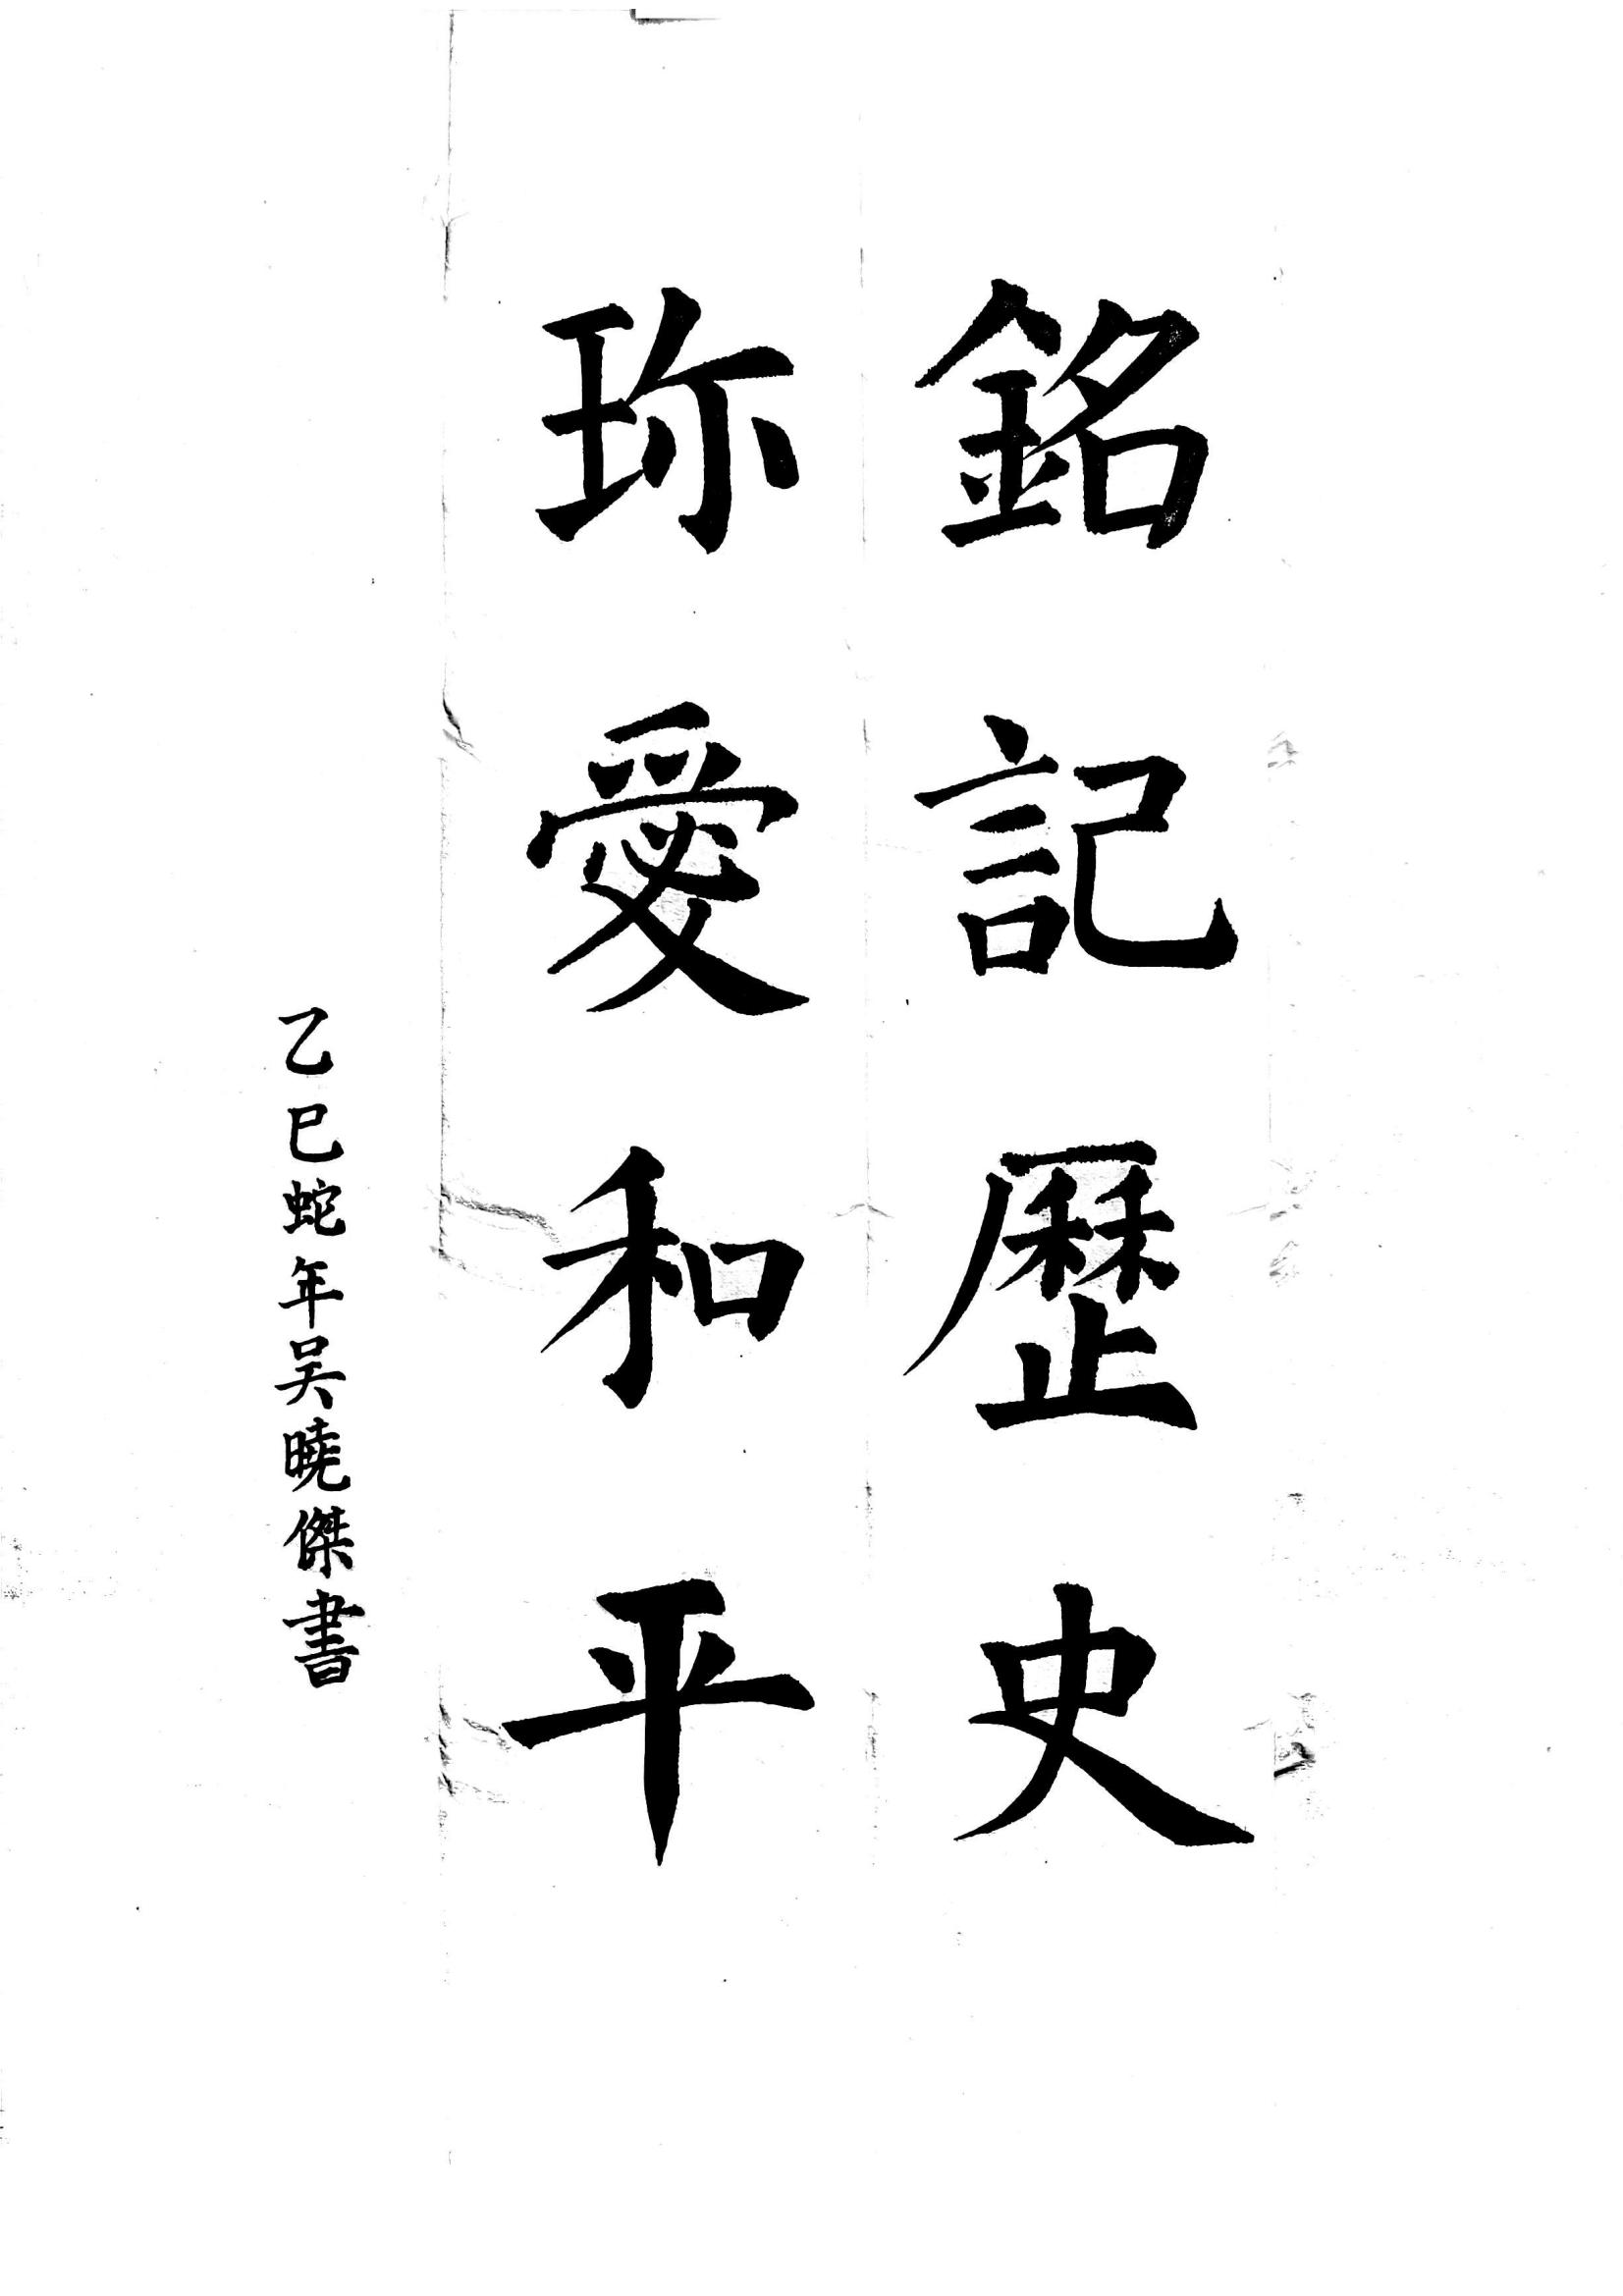 銘記歷史
珎愛和平
乙巳蛇年吴曉傑書